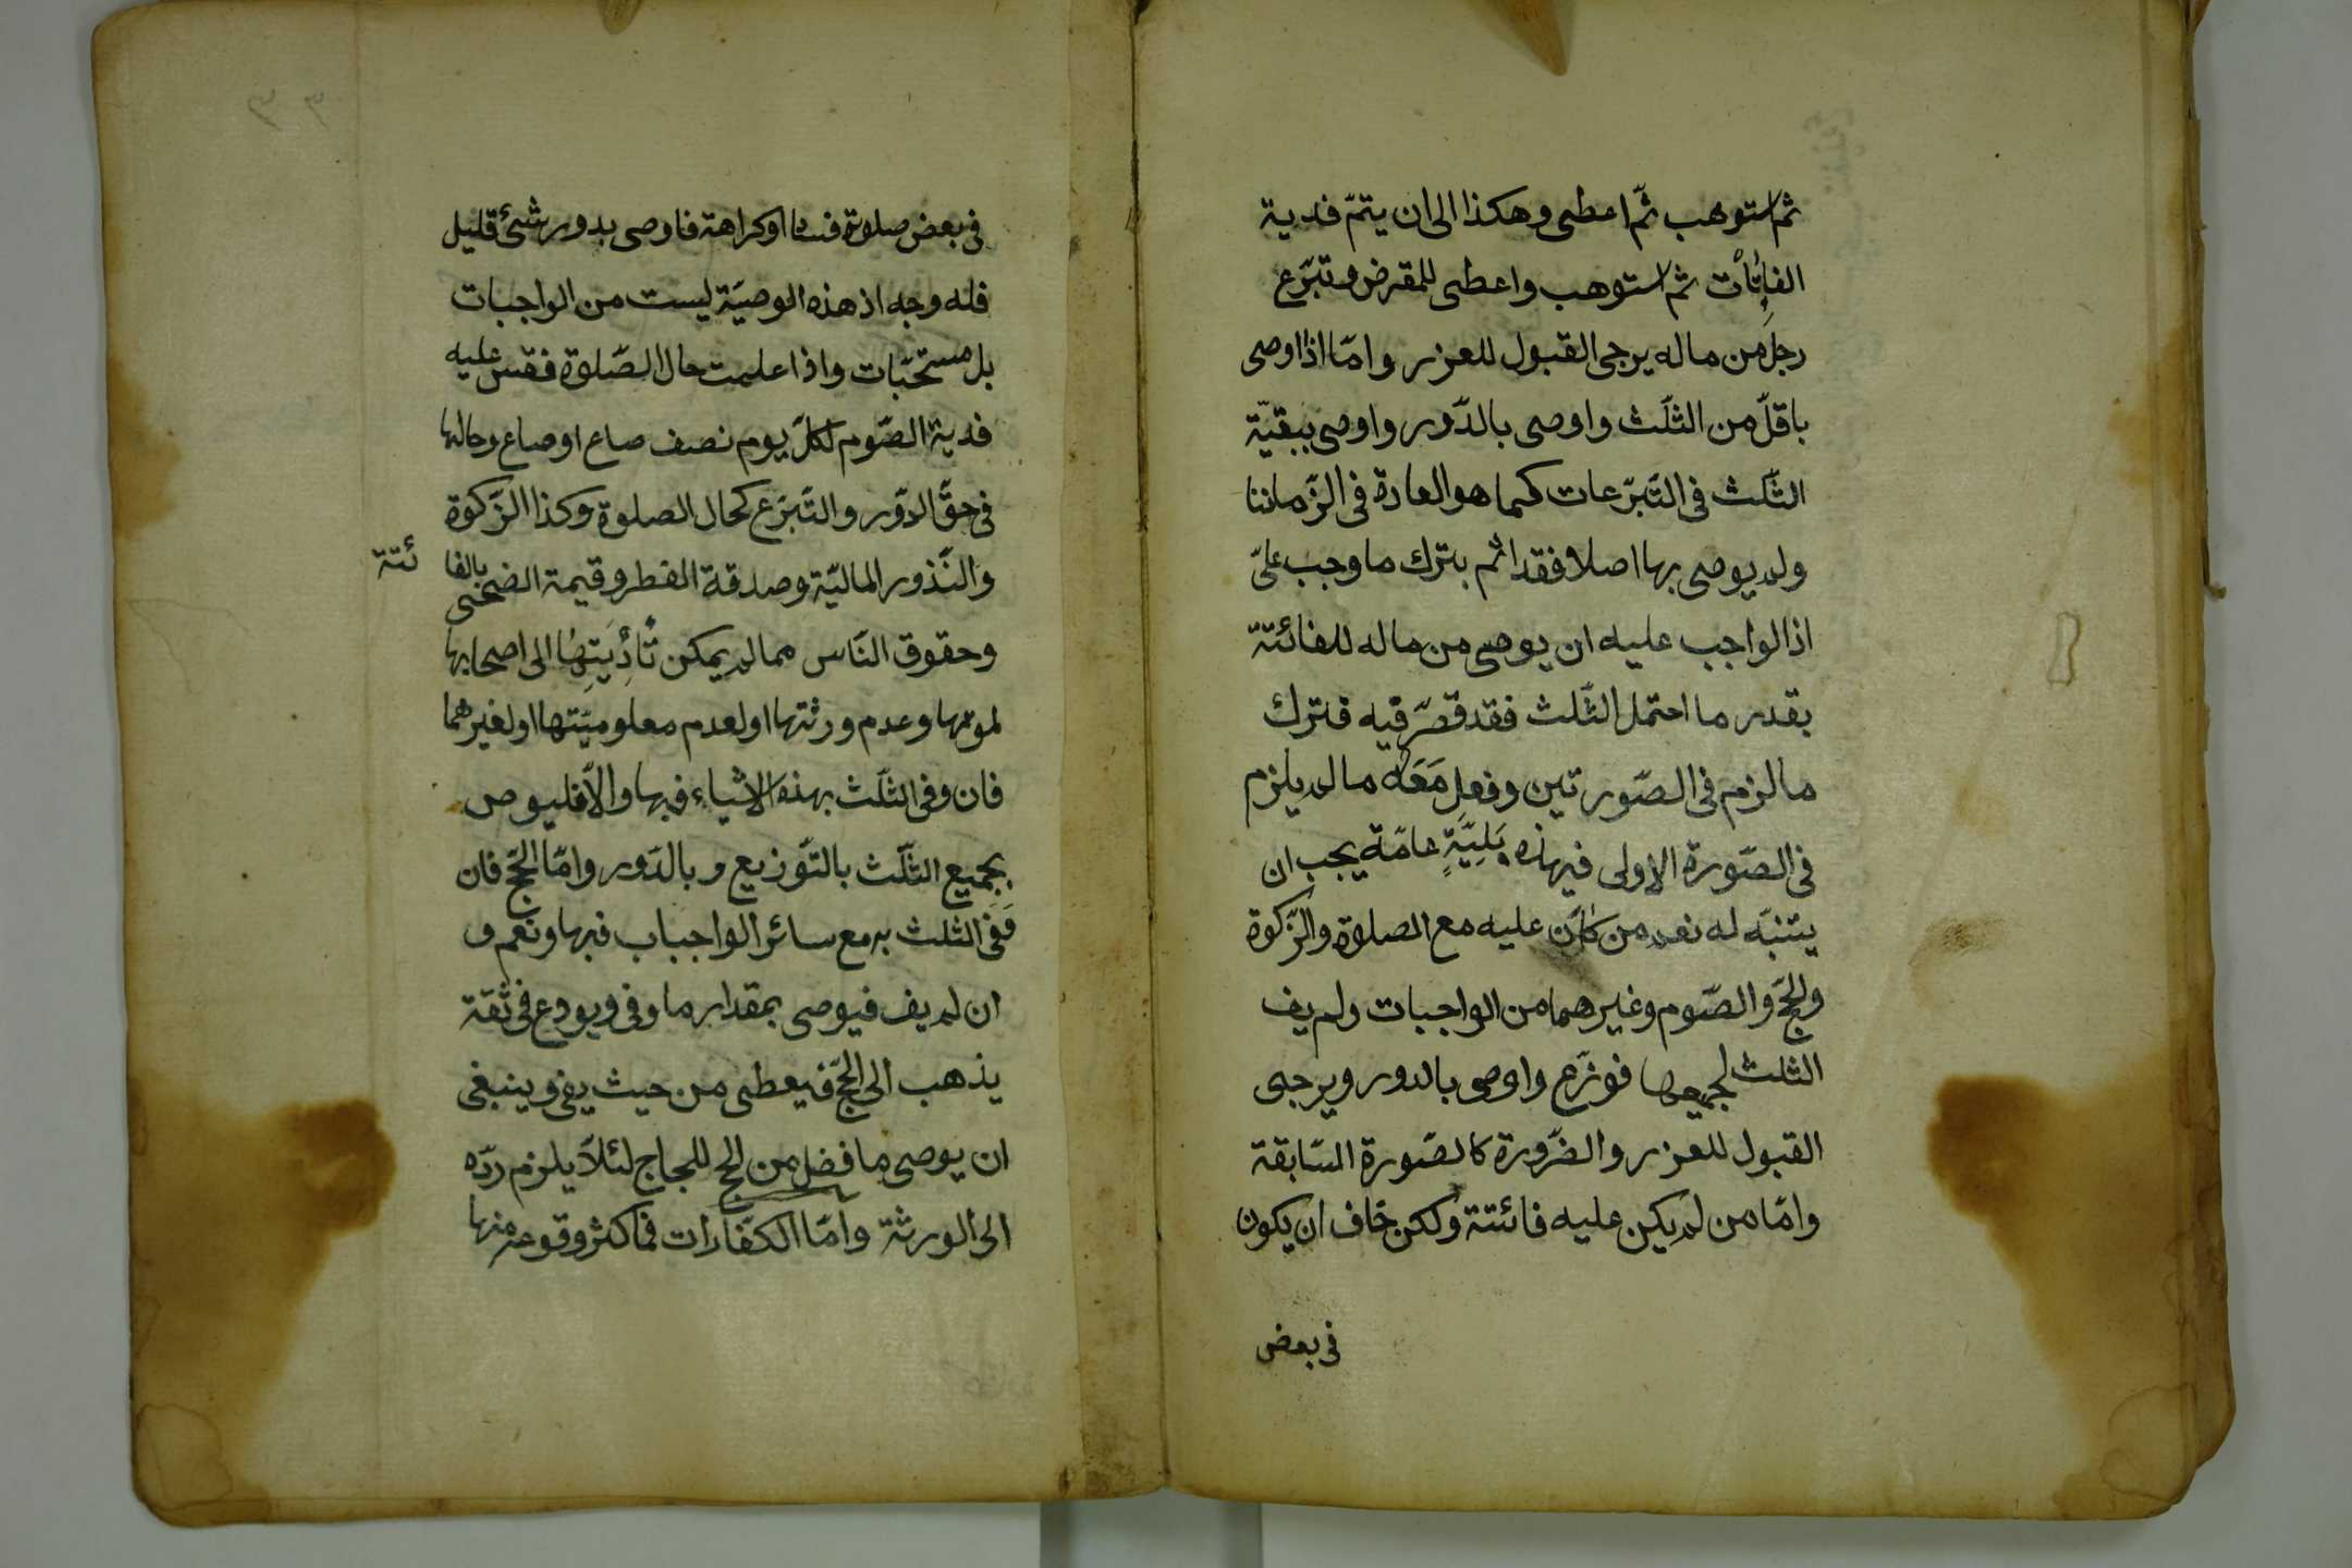 ثم استوهب ثمّ اعطى وهكذا الى ان يتمّ فدية
الفائتات ثم استوهب واعطى للمقرض وتبرّع
رجل من ماله يرجى القبول للعزر وامّا اذا اوصى
باقلّ من الثلّث واوصى بالدّور واوصى ببقيّة
الثّلث فى التّبرّعات كما هو العادة فى الزّماننا
ولم يوصى بها اصلا فقد اثم بترك ما وجب علىّ
اذ الواجب عليه ان يوصى من ماله للفائتة
بقدر ما احتمل الثّلث فقد قصّر فيه فترك
ما لزم فى الصّورتين وفعل معه ما لم يلزم
فى الصّورة الاولى فهذه بَلِيَّةٍ عامّة يجب ان
يتنبّه له نعم من كان عليه مع الصلوة والزّكوة
والحجّ والصّوم وغيرهما من الواجبات ولم يف
الثلث لجميعها فوزّع واوصى بالدور ويرجى
القبول للعزر والضّرورة كالصّورة السّابقة
وامّا من لم يكن عليه فائتة ولكن خاف ان يكون
فى بعض
فى بعض صلوة فسادا او كراهة فاوصى بدور شئ قليل
فله وجه اذ هذه الوصيّة ليست من الواجبات
بل مستحبّات واذا علمت حال الصّلوة فقس عليه
فدية الصّوم لكلّ يوم نصف صاع او صاع وحالها
فى حقّ الدّور والتّبرّع كحال الصلوة وكذا الزّكوة
والنّذور الماليّة وصدقة الفطر وقيمة الضحى بالفا ئتة
وحقوق النّاس مما لم يمكن تأديتها الى اصحابها
لموتها وعدم ورثتها او لعدم معلوميّتها او لغيرهما
فان وفى الثلّث بهذه الاشياء فبها والاّ فليوص
بجميع الثلّث بالتّوزيع وبالدّور وامّا الحجّ فان
ففى الثلث به مع سائر الواجباب فبها ونعم و
ان لم يف فيوصى بمقدار ما وفى ويودع فى ثقة
يذهب الى الحجّ فيعطى من حيث يفى وينبغى
ان يوصى ما فضل من الحج للحجاج لئلاّ يلزم ردّه
الى الورثة وامّا الكفّارات فما كثر وقوعه منها